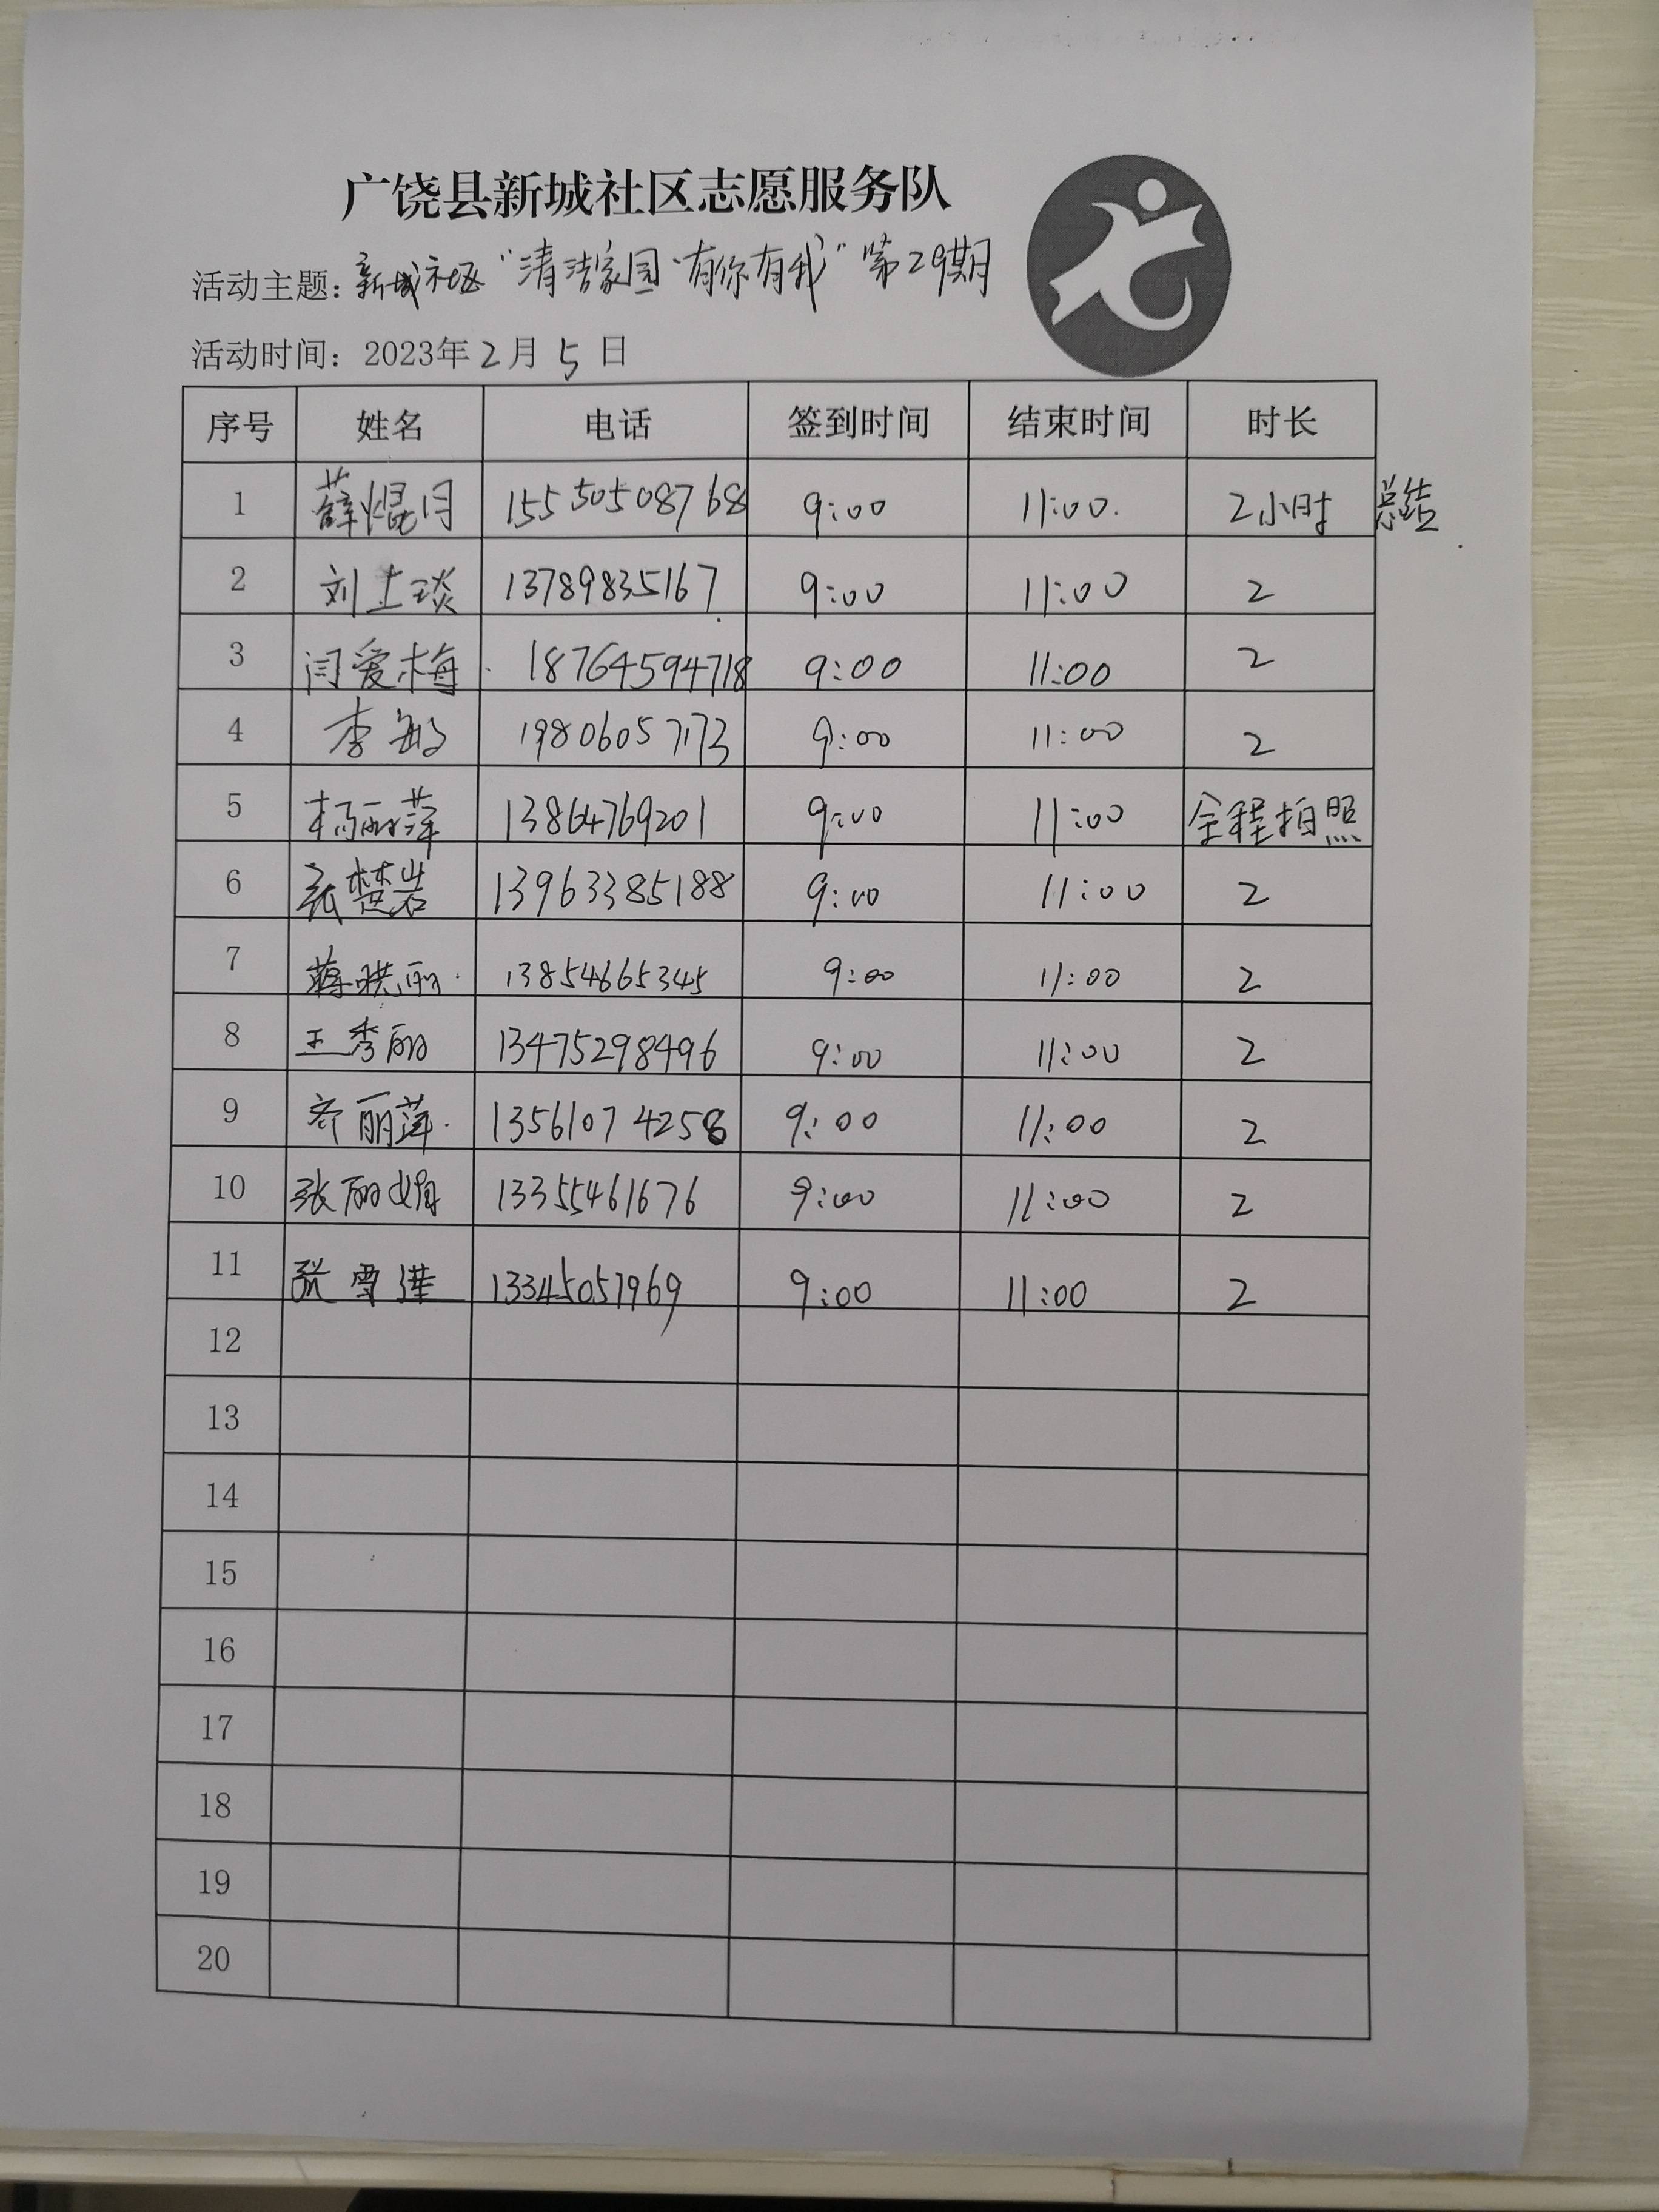 广饶县新城社区志愿服务队
活动主题：新城社区“清洁家园·有你有我”第29期
活动时间：2023年2月5日
序号 姓名 电话 签到时间 结束时间 时长
1 薛焜月 15550508768 9:00 11:00. 2小时 总结
2 刘土琰 13789835167 9:00 11:00 2
3 闫爱梅 18764594718 9:00 11:00 2
4 李敏 19806057173 9:00 11:00 2
5 杨丽萍 13864769201 9:00 11:00 全程拍照
6 张楚岩 13963385188 9:00 11:00 2
7 蒋晓丽 13854665345 9:00 11:00 2
8 王秀丽 13475298496 9:00 11:00 2
9 齐丽萍 13561074258 9:00 11:00 2
10 张丽娟 13355461676 9:00 11:00 2
11 张雪 13345051969 9:00 11:00 2
12
13
14
15
16
17
18
19
20